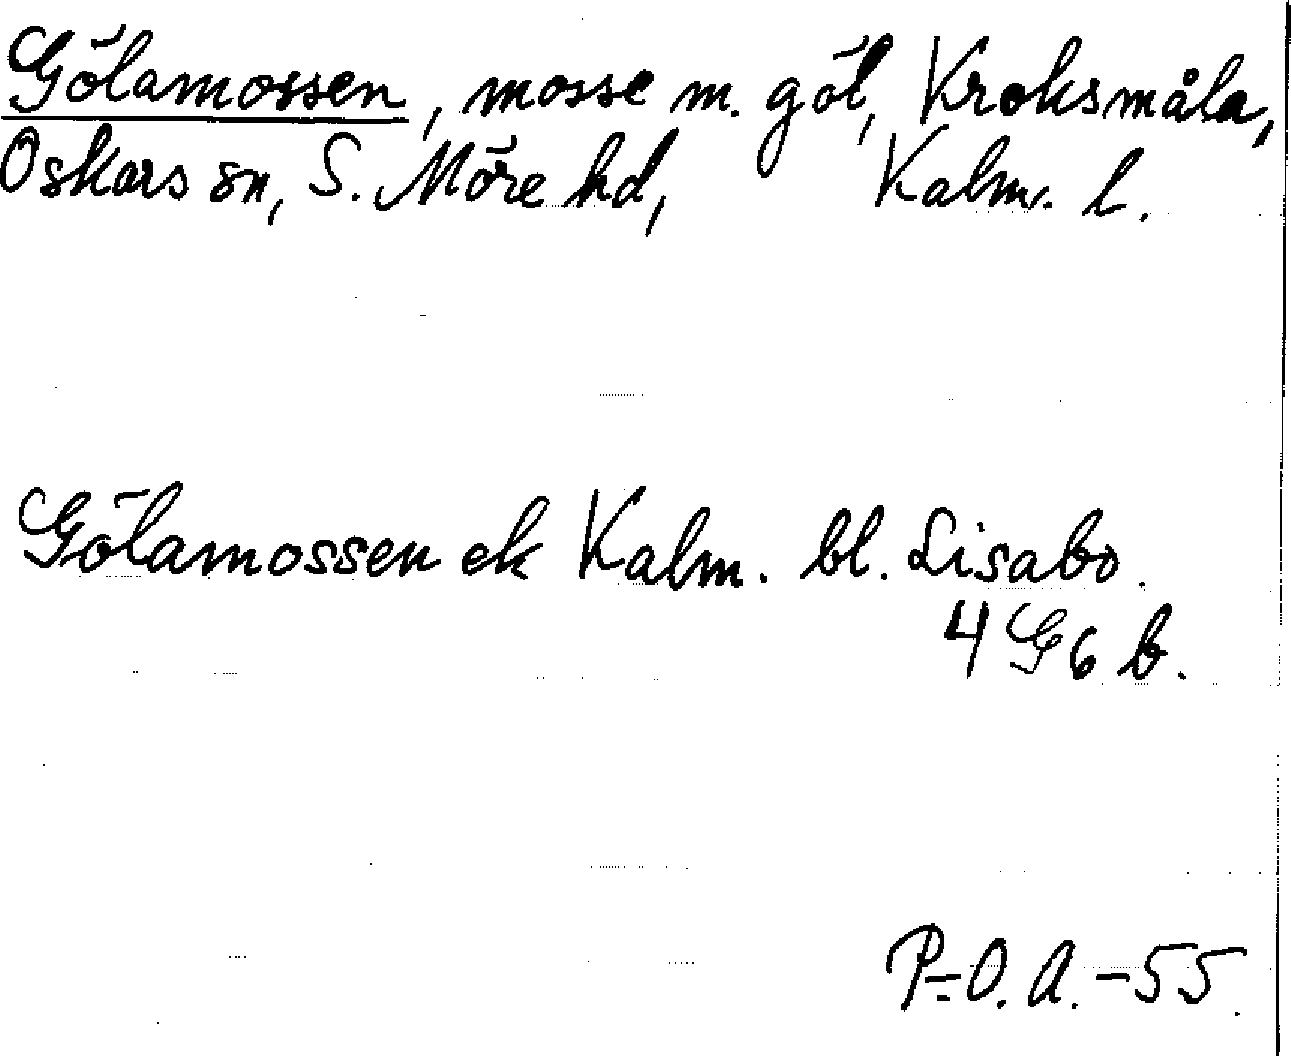 Gölamossen, mosse m. göl, Kroksmåla,
Oskars sn, S. Möre hd, Kalm. l.
Gölamossen ek Kalm. bl. Lisabo.
4 G 6 b.
P-O. A. -55.